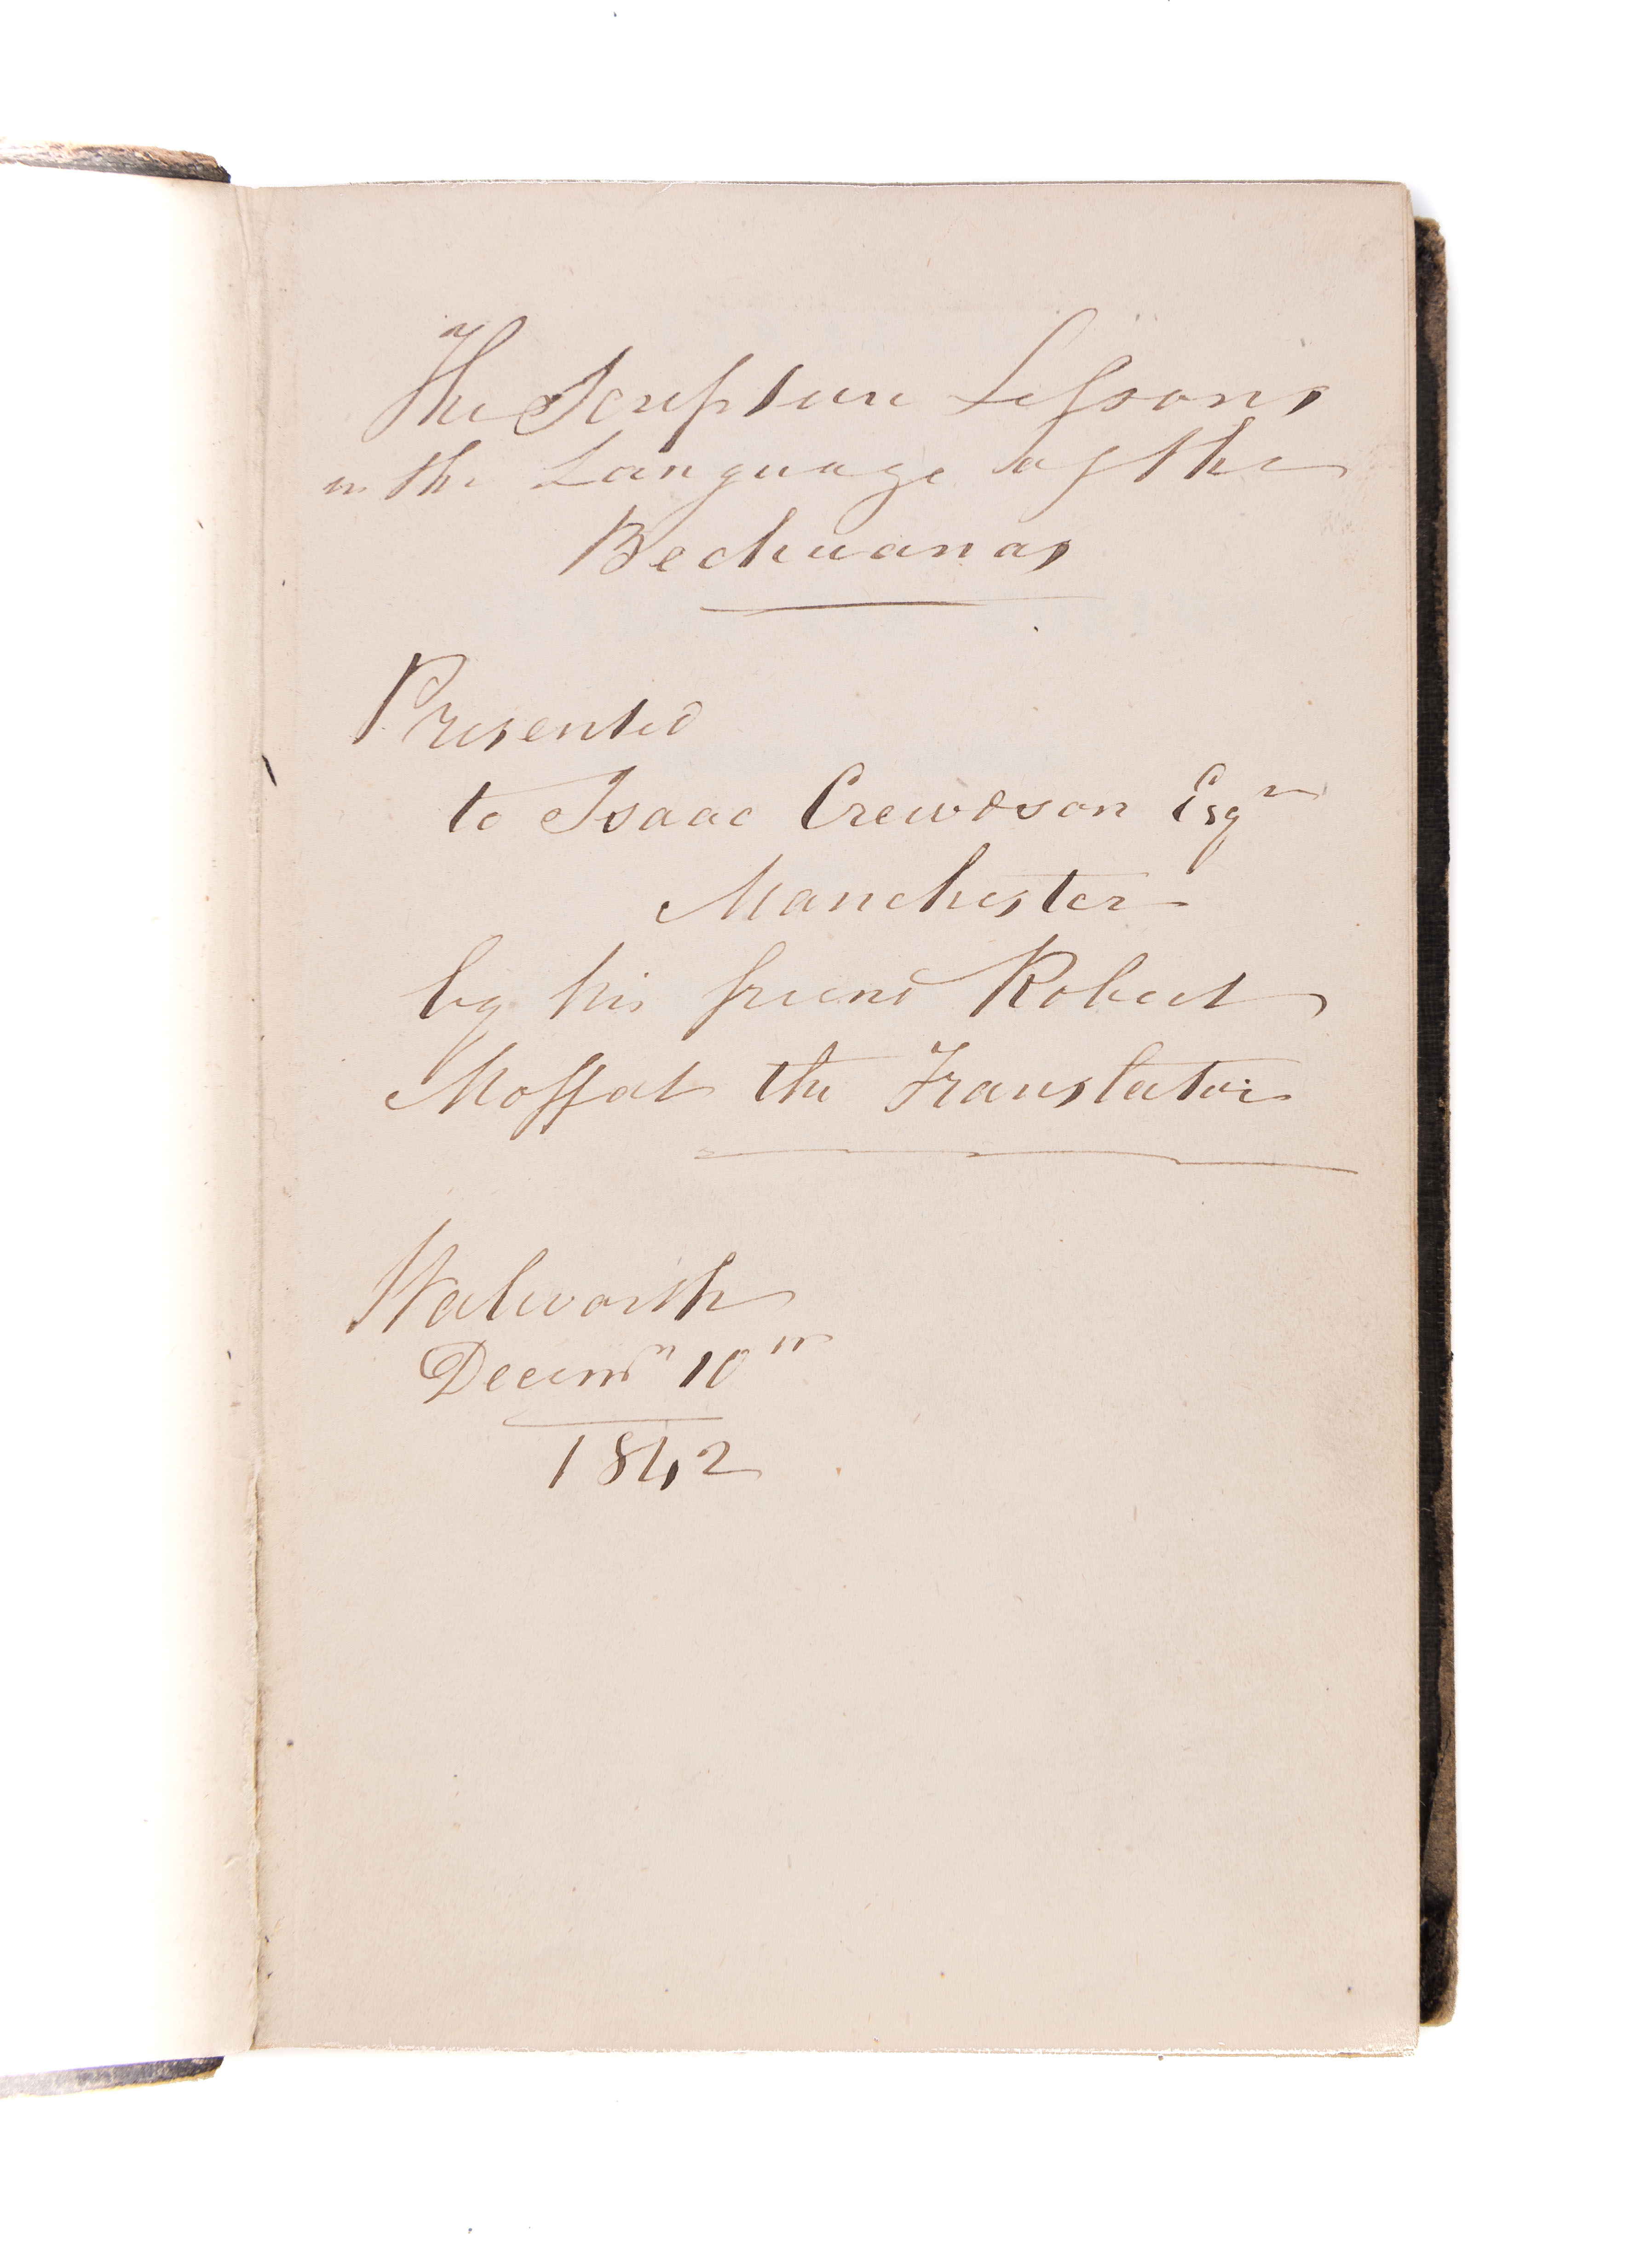 The Scripture Lessons
in the Language of the
Bechuanas
Presented
to Isaac Crewdson Esqr
Manchester
by his friend Robert
Moffat the Translator
Walworth
Decemr 10th
1842